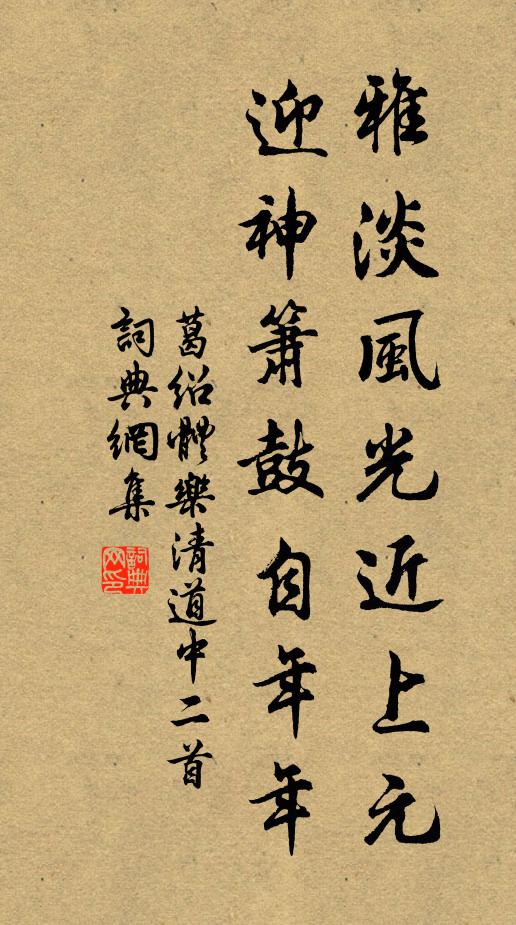 雅淡風光近上元
迎神簫鼓自年年
葛紹體樂清道中二首
詞典網集
詞典网印